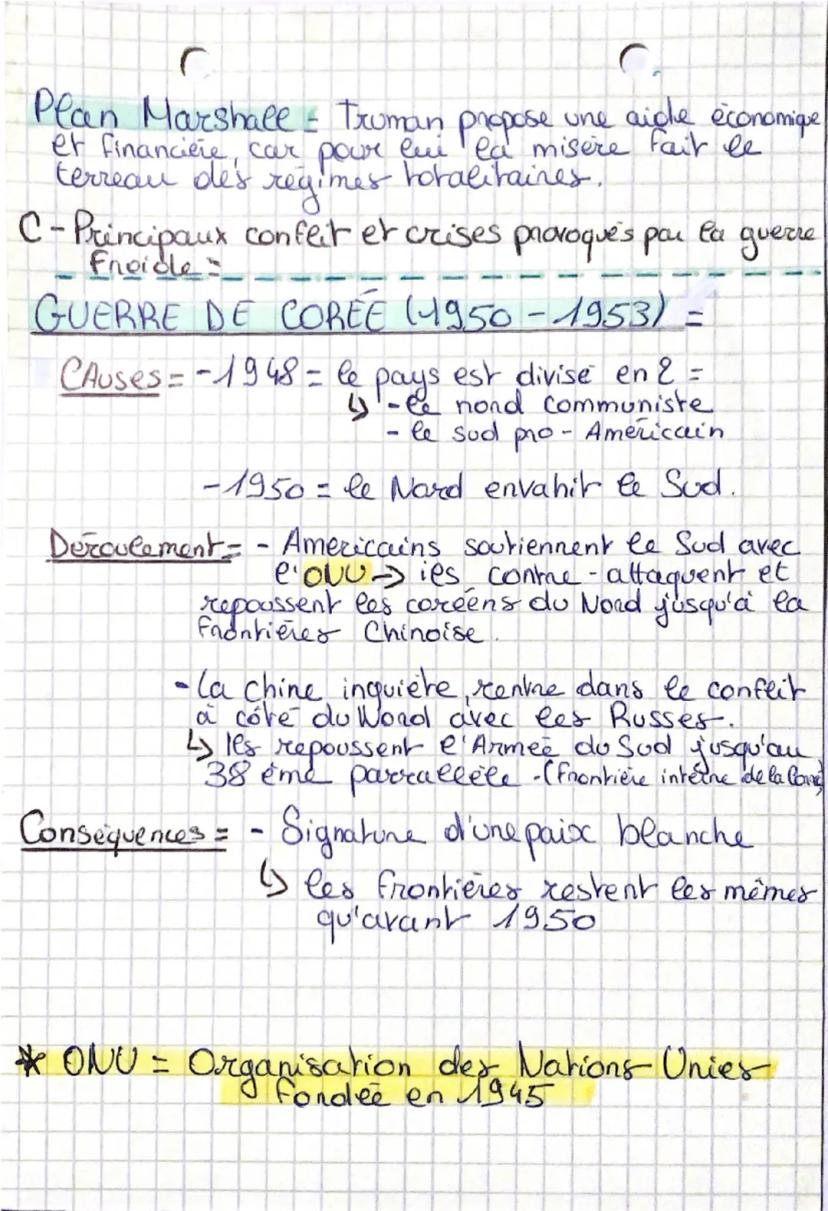 Plan Marshall = Truman propose une aide économique
et financière, car pour lui la misère fait le
terreau des régimes totalitaires.
C - Principaux conflit et crises provoqués par la guerre
froide =
GUERRE DE CORÉE (1950 - 1953) =
CAuses = - 1948 = le pays est divisé en 2 =
↳ - le nord communiste
- le sud pro - Américain
- 1950 = le Nord envahit le Sud.
Déroulement = - Américains soutiennent le Sud avec
l'ONU → ils contre - attaquent et
repoussent les coréens du Nord jusqu'à la
frontières Chinoise.
- La chine inquiète, rentre dans le conflit
à côté du Nord avec les Russes.
↳ Ils repoussent l'Armée du Sud jusqu'au
38 ème parrallèle. (frontière interne de la Corée)
Conséquences = - Signature d'une paix blanche
↳ les frontières restent les mêmes
qu'avant 1950
* ONU = Organisation des Nations Unies
fondée en 1945